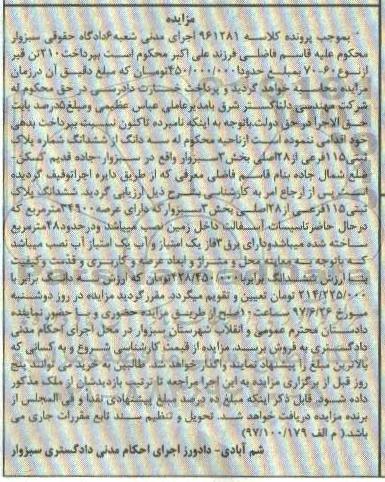 مزایده
بموجب پرونده کلاسه ۹۶۱۲۸۱ اجرای مدنی شعبه ۶ دادگاه حقوقی سبزوار
محکوم علیه قاسم فاضلی فرزند علی اکبر محکوم است بپرداخت ۲۱۰ تن قیر
از نوع ۷۰-۶۰ بمبلغ حدودا ۴۵۰/۰۰۰/۰۰۰ تومان که مبلغ دقیق آن در زمان
مزایده محاسبه خواهد گردید و پرداخت خسارت دادرسی در حق محکوم له
شرکت مهندسی دلتاگستر شرق بامدیرعاملی عباس عظیمی ومبلغ ۵درصد بابت
حق الاجرا در حق دولت باتوجه به اینکه نامبرده تاکنون نسبت بپرداخت بدهی
خود اقدامی ننموده است از ناحیه محکوم له سه دانگ از ششدانگ شماره پلاک
ثبتی ۱۱۵فرعی از ۲۸اصلی بخش ۳سبزوار واقع در سبزوار-جاده قدیم کمکن-
ضلع شمال جاده بنام قاسم فاضلی معرفی که از طریق دایره اجراتوقیف گردیده
پس از ارجاع امر به کارشناسی بشرح ذیل ارزیابی گردید ششدانگ پلاک
ثبتی ۱۱۵فرعی از ۲۸اصلی بخش ۳سبزوار که دارای عرصه ۳۴۹۰۰مترمربع که
درحال حاضرتاسیسات آسفالت داخل زمین نصب میباشد ودرحدود ۲۸مترمربع
ساخته شده میباشدودارای برق ۳فاز یک امتیاز و آب یک امتیاز آب نصب میباشد
که باتوجه به معاینه محل و متراژ و ابعاد عرصه و کاربری و قدمت وکیفیت
بنا ارزش ششدانگ برابر با ۴۲۸/۴۵۰/۰۰۰تومان که ارزش سه دانگ برابر با
۲۱۴/۲۲۵/۰۰۰ تومان تعیین و تقویم میگردد. مقرر گردید مزایده در روز دوشنبه
مورخ ۹۷/۶/۲۶ ساعت ۱۰صبح از طریق مزایده حضوری و با حضور نماینده
دادستان محترم عمومی و انقلاب شهرستان سبزوار در محل اجرای احکام مدنی
دادگستری به فروش برسد. مزایده از قیمت کارشناسی شروع و به کسانی که
بالاترین مبلغ را پیشنهاد نمایند واگذار خواهد شد. طالبین به خرید می توانند پنج
روز قبل از برگزاری مزایده به این اجرا مراجعه تا ترتیب بازدیدشان از ملک مذکور
داده شود. قابل ذکر اینکه مبلغ ده درصد مبلغ پیشنهادی نقدا و فی المجلس از
برنده مزایده دریافت خواهد شد. تحویل و تنظیم سند تابع مقررات جاری می
باشد.( م الف ۹۷/۱۰۰/۱۷۹)
شم آبادی- دادورز اجرای احکام مدنی دادگستری سبزوار